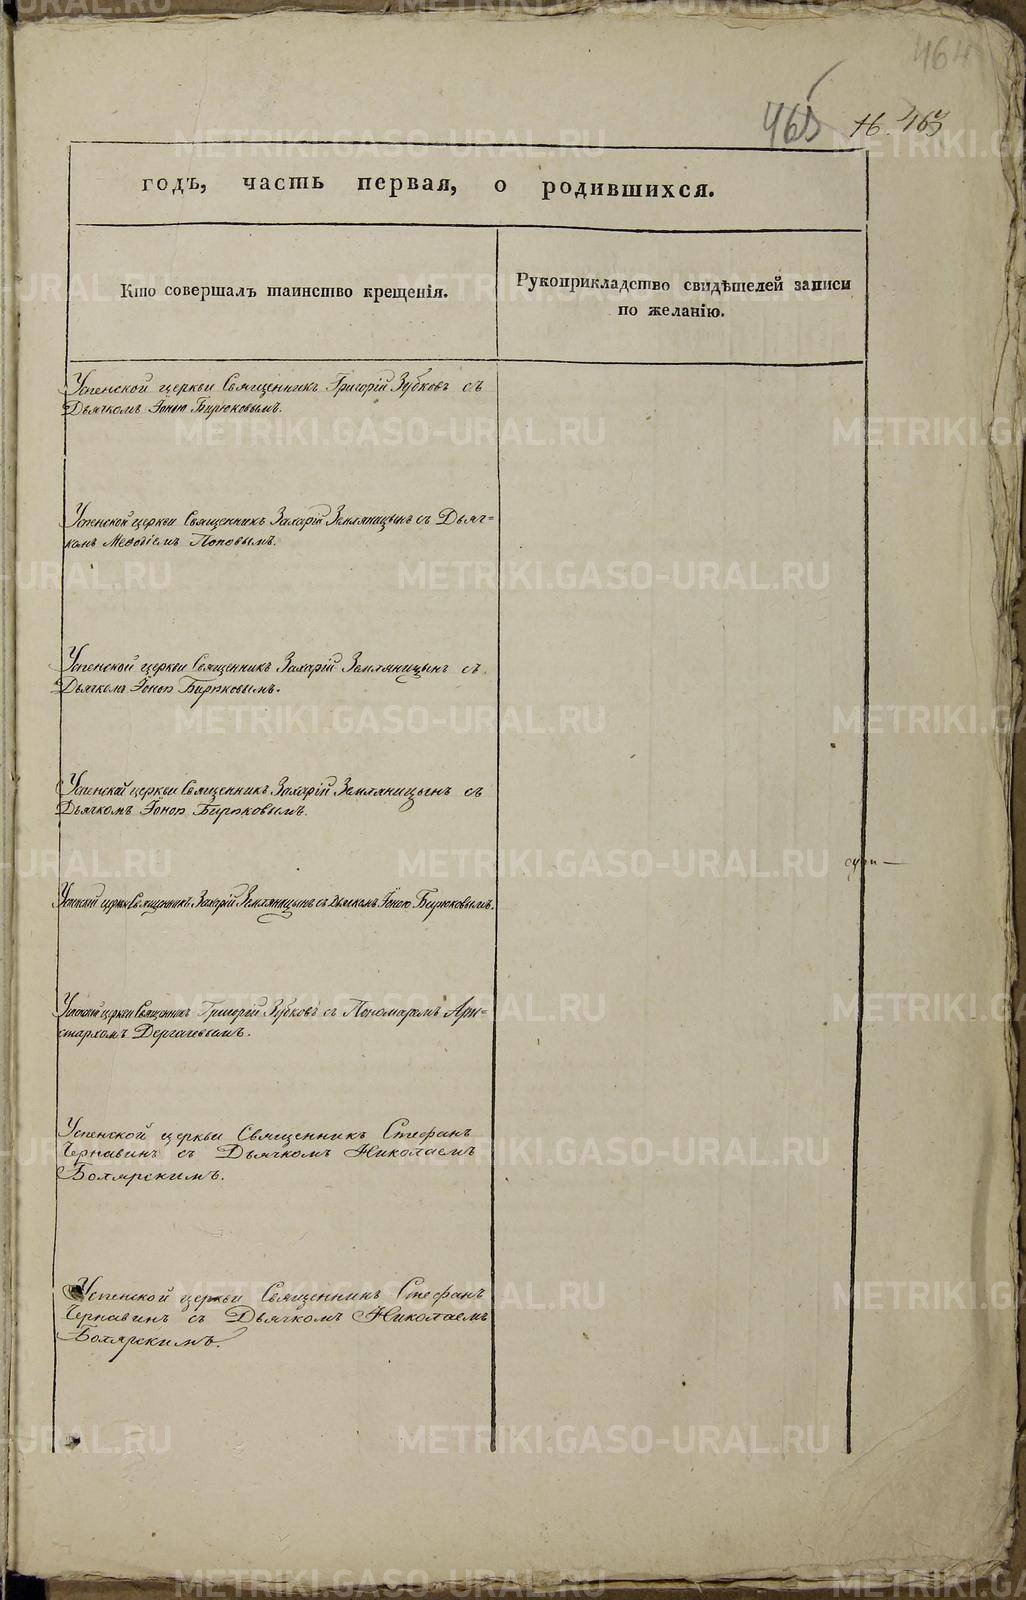 464
465 46. 463
годъ, часть первая, о родившихся.
Кто совершалъ таинство крещенія.
Рукоприкладство свидѣтелей записи
по желанію.
Успенской церкви Священникъ Григорій Зубковъ съ
Дьячкомъ Іоною Бирюковымъ.
Успенской церкви Священникъ Захарій Земляницынъ съ Дьяч-
комъ Меѳодіемъ Поповымъ.
Успенской церкви Священникъ Захарій Земляницынъ съ
Дьячкомъ Іоною Бирюковымъ.
Успенской церкви Священникъ Захарій Земляницынъ съ
Дьячкомъ Іоною Бирюковымъ.
Успенской церкви Священникъ Захарій Земляницынъ съ Дьячкомъ Іоною Бирюковымъ.
Успенской церкви Священникъ Григорій Зубковъ съ Пономаремъ Ари-
стархомъ Дергачевымъ.
Успенской церкви Священникъ Стефанъ
Чернавинъ съ Дьячкомъ Николаемъ
Боярскимъ.
Успенской церкви Священникъ Стефанъ
Чернавинъ съ Дьячкомъ Николаемъ
Боярскимъ.
METRIKI.GASO-URAL.RU